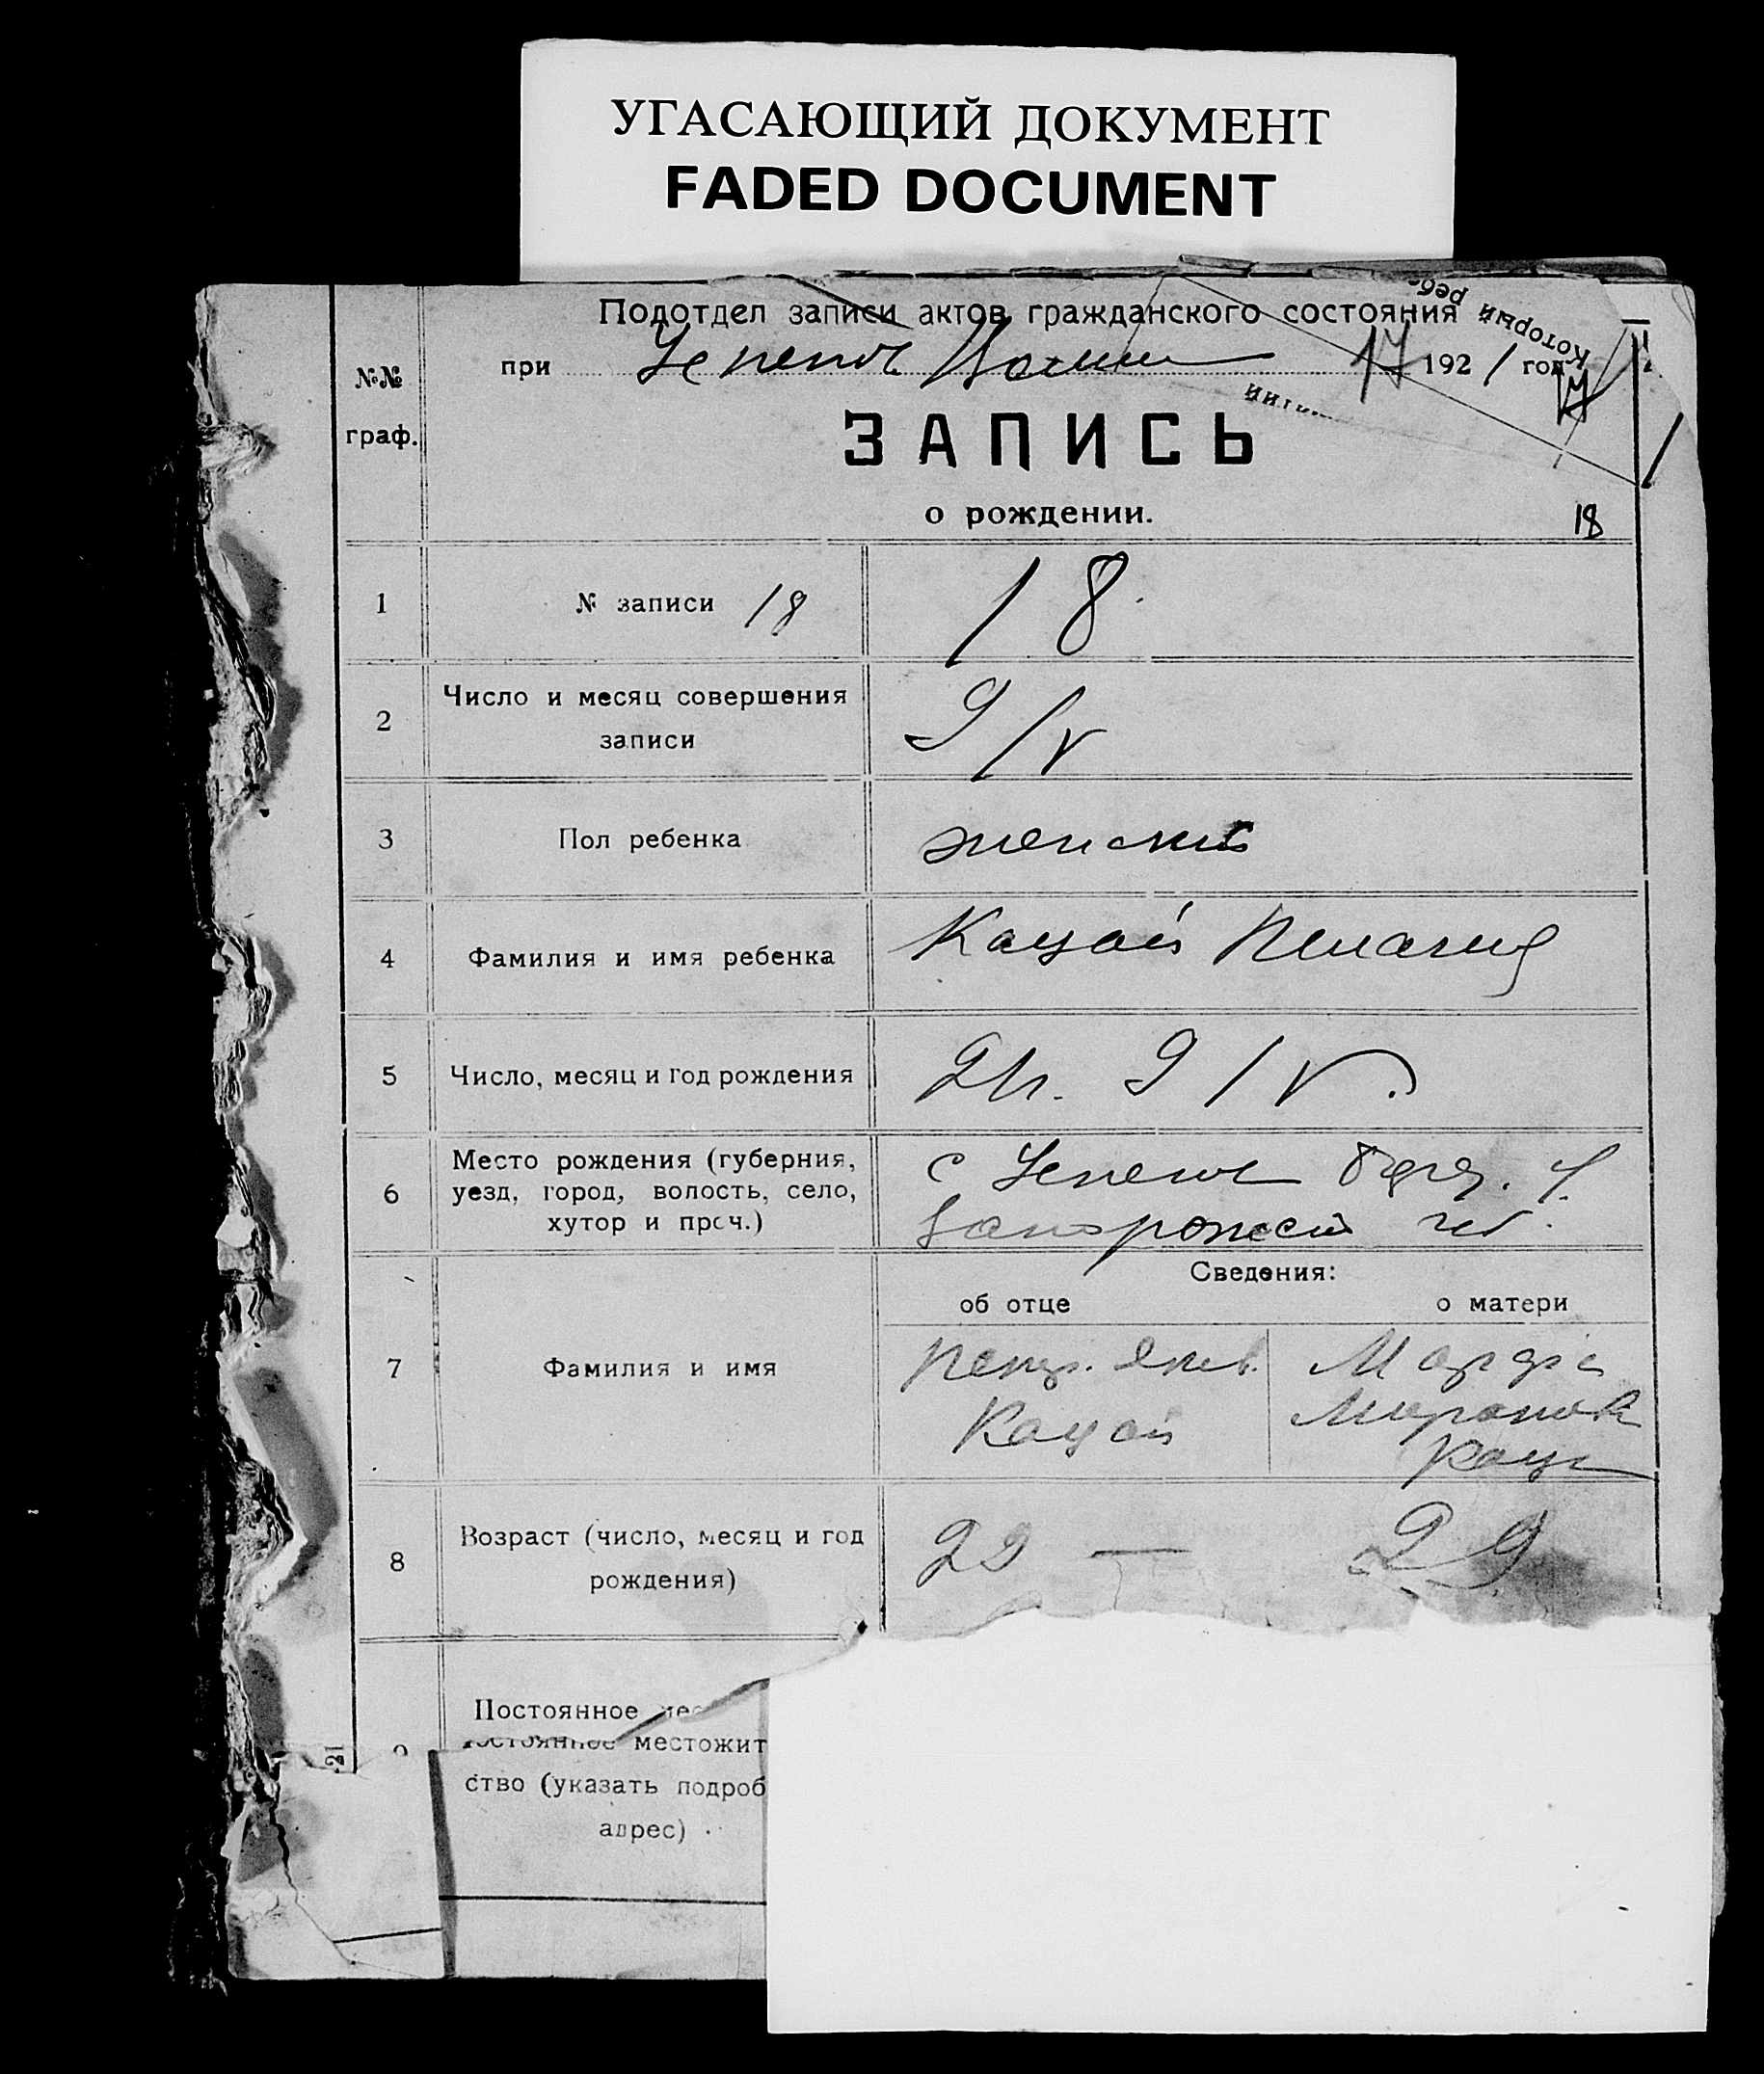 УГАСАЮЩИЙ ДОКУМЕНТ
FADED DOCUMENT
Который реб
Подотдел записи актов гражданского состояния
при 17 1921 год
17
№№
граф.
ЗАПИСЬ
о рождении.
18
1 № записи 18 18.
2 Число и месяц совершения
записи
9/V
3 Пол ребенка женский
4 Фамилия и имя ребенка Кацай Пелагия
5 Число, месяц и год рождения 9/V
6 Место рождения (губерния,
уезд, город, волость, село,
хутор и проч.)
с
Запорожской губ.
Сведения:
об отце о матери
7 Фамилия и имя
Кацай
Марфа
Миронов
Каца
8 Возраст (число, месяц и год
рождения)
29 — 29
Постоянное
местожит
ство (указать подроб
адрес)
21